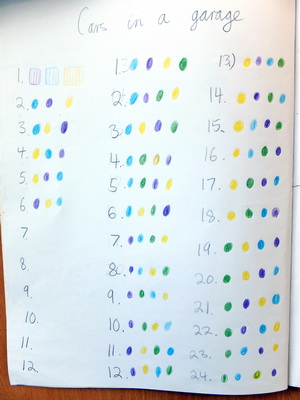 Cars in a garage
1.
2.
3.
4.
5.
6.
7.
8.
9.
10.
11.
12
1.
2.
3.
4.
5.
6.
7.
8.
9.
10.
11.
12.
13)
14.
15.
16.
17.
18.
19.
20.
21.
22.
23.
24.